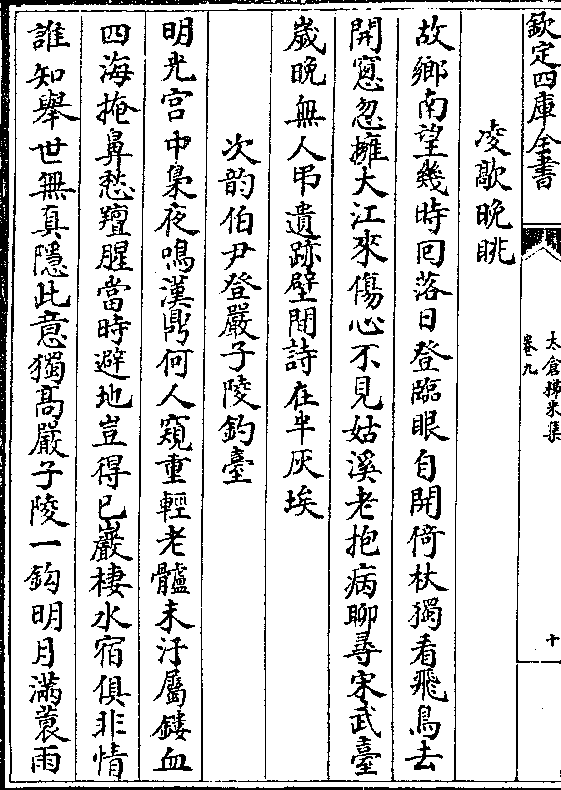 欽定四庫全書
太倉稊米集
卷九
十
凌歊晚眺
故鄉南望幾時回落日登臨眼自開倚杖獨看飛鳥去
開窓忽擁大江來傷心不見姑溪老抱病聊尋宋武臺
嵗晩無人弔遺跡壁間詩在半灰埃
次韵伯尹登嚴子陵釣臺
明光宫中梟夜鳴漢鼎何人窺重輕老髗未汙屬鏤血
四海掩鼻愁羶腥當時避地豈得已巖棲水宿俱非情
誰知舉世無真隱此意獨髙嚴子陵一鈎明月滿蓑雨